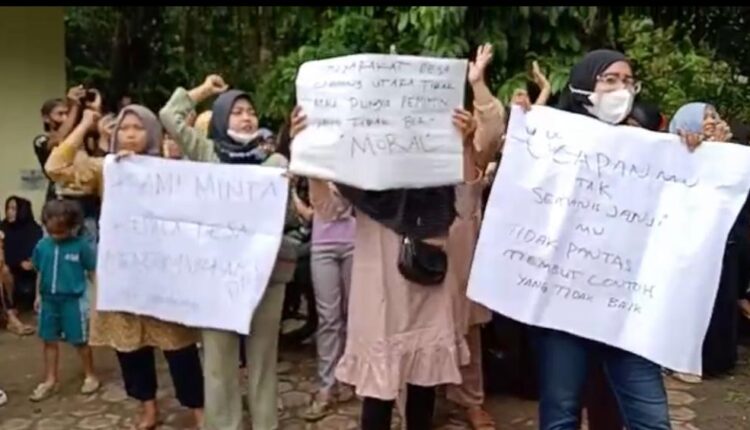 KAMI MINTA
KEPALA DESA
MASYARAKAT DESA
UTARA TIDAK
MAU PUNYA PEMIMPIN
YANG TIDAK BER-
"MORAL"
UCAPAN MU
TAK
SEMANIS JANJI
MU
TIDAK PANTAS
MEMBUT CONTOH
YANG TIDAK BAIK